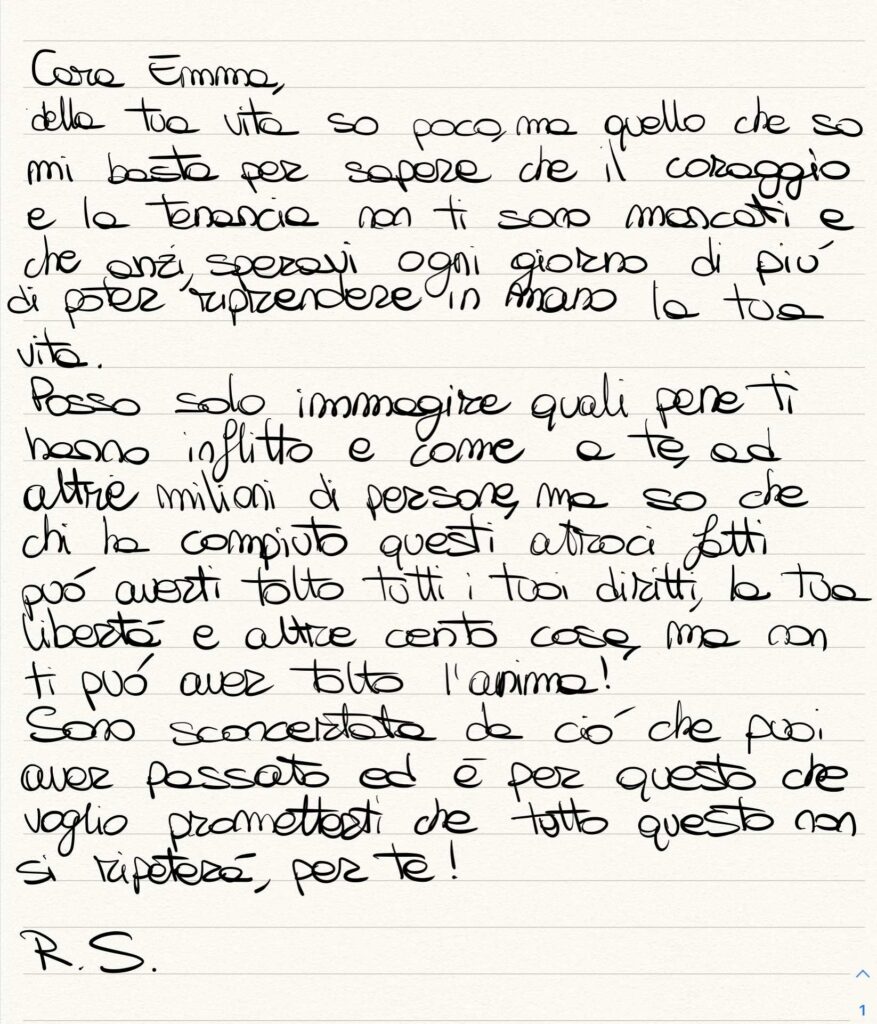 Cara Emma,
della tua vita so poco, ma quello che so
mi basta per sapere che il coraggio
e la tenancia non ti sono mancati e
che anzi, speravi ogni giorno di piú
di poter riprendere in mano la tua
vita.
Posso solo immagire quali pene ti
hanno inflitto e come a te, ad
altrie milioni di persone, ma so che
chi ha compiuto questi atroci fatti
puó averti tolto tutti i tuoi diritti, la tua
libertá e altre cento cose, ma non
ti puó aver tolto l'anima!
Sono sconcertata da ció che puoi
aver passato ed é per questo che
voglio prometterti che tutto questo non
si ripeterá, per te!
R.S.
1